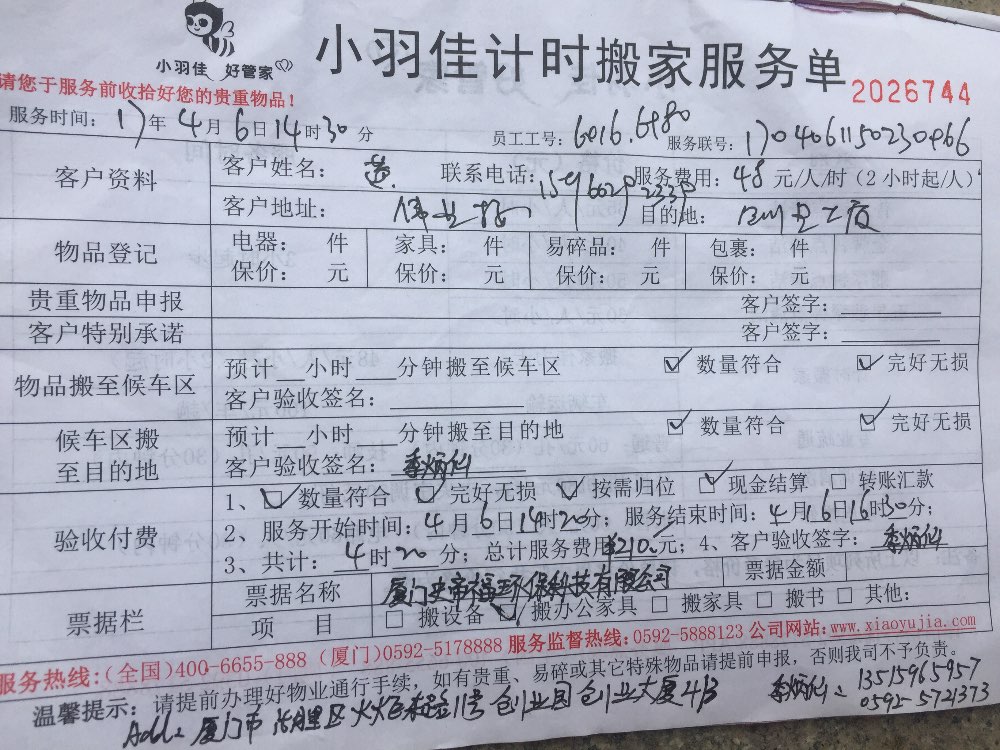 小羽佳 好管家
小羽佳计时搬家服务单
请您于服务前收拾好您的贵重物品！
2026744
服务时间：17年4月6日14时30分 员工工号：6016.6980 服务联号：1704061150230966
客户资料
客户姓名： 联系电话： 服务费用：48元/人/时（2小时起/人）
客户地址： 目的地：
物品登记
电器： 件 家具： 件 易碎品： 件 包裹： 件
保价： 元 保价： 元 保价： 元 保价： 元
贵重物品申报 客户签字：
客户特别承诺 客户签字：
物品搬至候车区
预计 小时 分钟搬至候车区 ☑ 数量符合 ☑ 完好无损
客户验收签名：
候车区搬
至目的地
预计 小时 分钟搬至目的地 ☑ 数量符合 ☑ 完好无损
客户验收签名：
验收付费
1、☑ 数量符合 ☑ 完好无损 ☑ 按需归位 ☑ 现金结算 □ 转账汇款
2、服务开始时间：4月6日14时20分；服务结束时间：4月6日16时30分；
3、共计：4时20分；总计服务费用¥210元；4、客户验收签字：
票据栏
票据名称 厦门史帝福环保科技有限公司 票据金额
项 目 □ 搬设备 ☑ 搬办公家具 □ 搬家具 □ 搬书 □ 其他：
服务热线：(全国)400-6655-888 (厦门)0592-5178888 服务监督热线：0592-5888123 公司网站：www.xiaoyujia.com
温馨提示：请提前办理好物业通行手续，如有贵重、易碎或其它特殊物品请提前申报，否则我司不予负责。
Add: 厦门市 区火炬 11号创业园创业大厦413
13515965957
0592-5721373